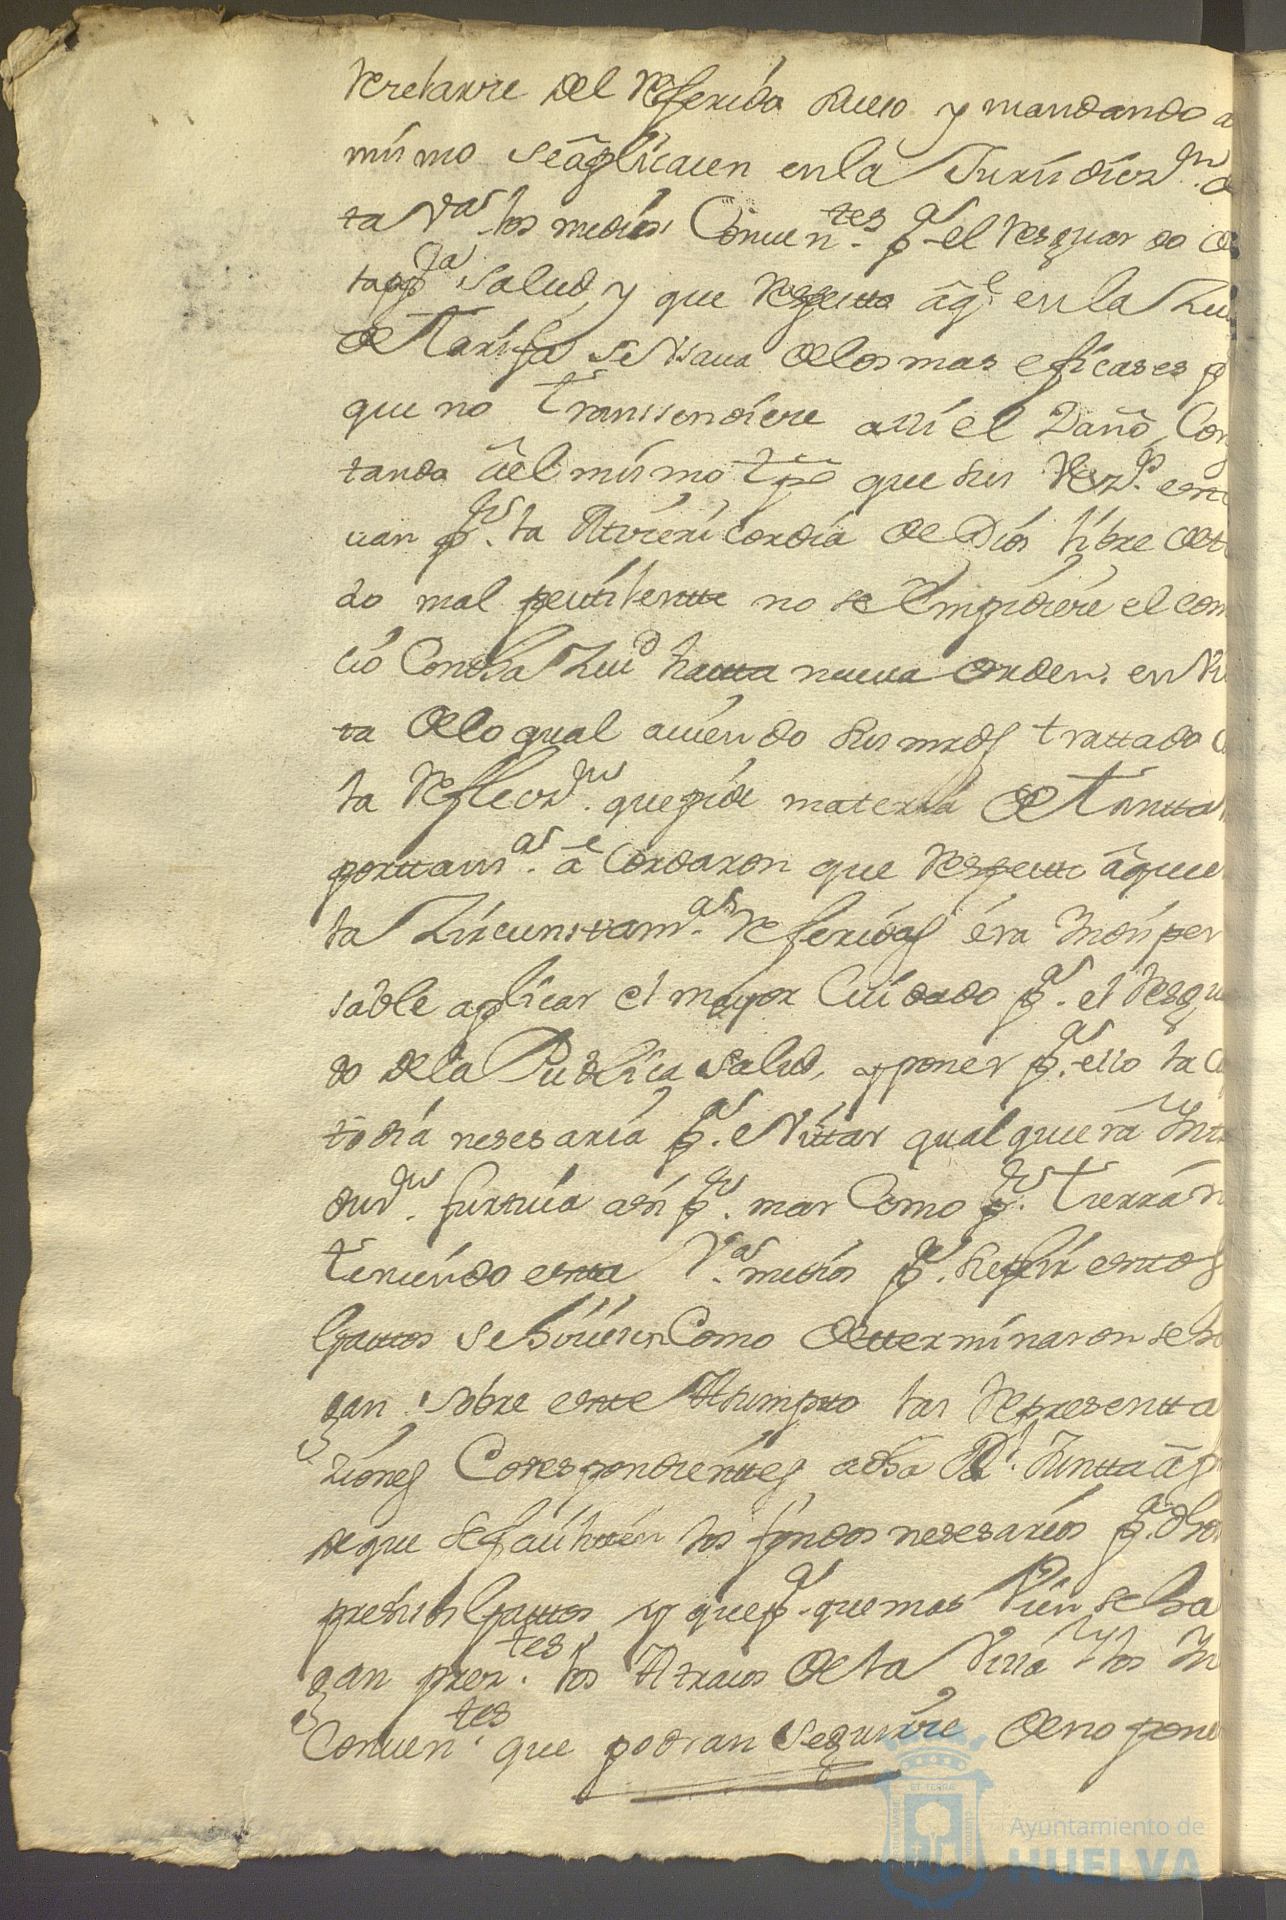 del referido y mandando a
mismo se aplicasen en la Jurisdiczn. d
ta Va. los medios Conuentes. pa. el resguardo de
ta pca salud, y que respecto aqe. en la Ziu
de Tarifa se vsaua de los mas eficases p
que no transsendiere assi el Daño, Con
tando ael mismo tpo que sus Vezos. esta
uan pr. la Misericordia de Dios libre de to
do mal pestilente no se Empidiere el com
cio Con dha Ziud hasta nueua orden. en Vis
ta de lo qual auiendo sus mrds trattado C
la reflexn. que pide materia de tantta
porttanza. acordaron que respecto a que
la Zircunstanzas. referidas era Indispen
sable aplicar el mayor Cuidado pa. el resgu
do de la Publica salud, y poner pa. ello la Cu
todia nesesaria pa. evittar qual quiera Intr
duzn. furtiua asi pr. mar Como pr. tierra n
teniendo esta Va. medios pa. suplir estos
gastos se hiziesen Como determinaron se ha
gan sobre este Asumpto las representta
ziones Corespondientes adha Rl. Juntta a f
de que se faciliten los fondos nesesarios pa. dhos
presisos gastos y que pa. que mas bien se ha
gan prestes. los Atrasos de la Villa y los In
Conuentes. que podran seguirse de no pone
Ayuntamiento de
HUELVA